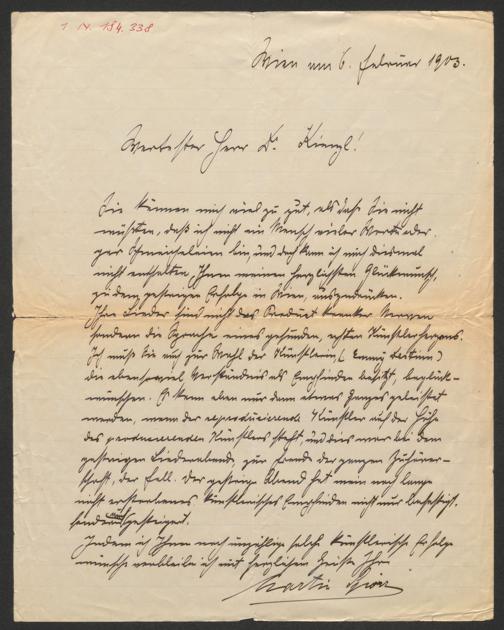 I N. 184.338
Wien am 6. Februar 1903.
Wertester Herr Dr. Kienzl!
Sie kennen mich viel zu gut, als daß Sie nicht
wüßten, daß ich nicht ein Mensch vieler Worte oder
gar Schmeicheleien bin, und doch kann ich mich diesmal
nicht enthalten, Ihnen meinen herzlichsten Glückwunsch,
zu dem gestrigen Erfolge in Wien, auszudrücken.
Ihre Lieder sind nicht das Product kranker Nerven
sondern die Sprache eines gesunden, echten Künstlerherzens.
Ich muß Sie auch zur Wahl der Künstlerin (Emmy
die ebensoviel Verständnis als Empfinden besitzt, beglück-
wünschen. Es kann eben nur dann etwas Ganzes geleistet
werden, wenn der reproducirende Künstler auf der Höhe
des producierenden Künstlers steht, und dies war bei dem
gestrigen Liederabende, zur Freude der ganzen Zuhörer-
schaft, der Fall. Der gestrige Abend hat mein noch lange
nicht erstorbenes künstlerisches Empfinden nicht nur
sondern auch gesteigert.
Indem ich Ihnen noch unzählige solche künstlerische Erfolge
wünsche verbleibe ich mit herzlichem Ihr
Martin